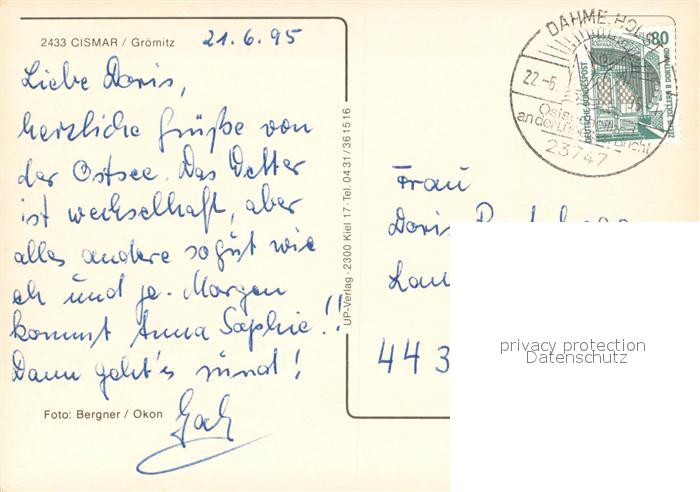 2433 CISMAR / Grömitz
21.6.95
Liebe Doris,
herzliche Grüße von
der Ostsee. Das Wetter
ist wechselhaft, aber
alles andere so gut wie
eh und je. Morgen
kommt Anna Sophie!!
Dann geht's rund!
Foto: Bergner / Okon
UP-Verlag · 2300 Kiel 17 · Tel. 0431/361516
DAHME, HOLST
22.-6.
an der Lübecker Bucht
23747
80
DEUTSCHE BUNDESPOST
ZECHE ZOLLERN II DORTMUND
Frau
Doris
443
privacy protection
Datenschutz